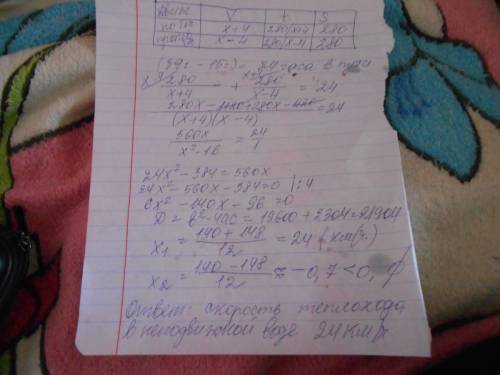 движ V t S
по теч x+4 280/x+4 280
против x-4 280/x-4 280
(39ч - 15ч) = 24 часа в пути
280/(x+4) + 280/(x-4) = 24
(x+4)(x-4)
560x/(x²-16) = 24/1
24x² - 384 = 560x
24x² - 560x - 384 = 0 | : 4
6x² - 140x - 96 = 0
D = b² - 4ac = 19600 + 2304 = 21904
x₁ = (140 + 148)/12 = 24 (км/ч)
x₂ = (140 - 148)/12 ≈ -0,7 < 0, ∅
Ответ: скорость теплохода
в неподвижной воде 24 км/ч